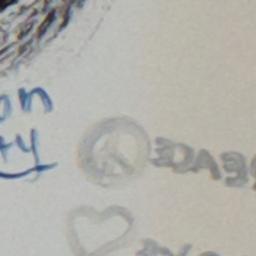 on
ty
PEACE